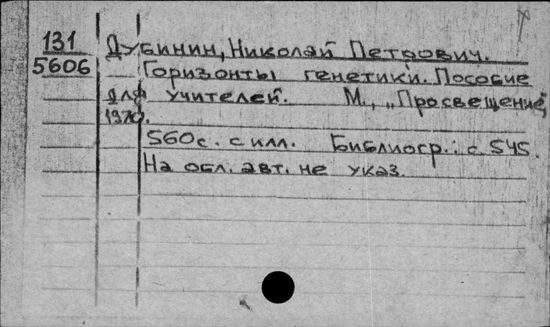 131
5606
Дубинин, Николай Петрович.
Горизонты генетики. Пособие
для учителей. М., „Просвещение",
1970.
560 с. с илл. Библиогр.: с. 545.
На обл. авт. не указ.